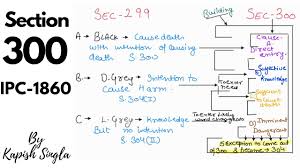 Section
300
IPC-1860
By
Kapish Singla
SEC-299
A → BLACK → Cause death
with intention of causing
death S 300
B → D.Grey → Intention to
Cause Harm
S 304(I)
C → L.Grey → Knowledge
But no intention
S 304(II)
Building
SEC-300
Cause-
A
Direct
entry.
Knowledge
Imminent
Dangerous
5 Exception to come out
of 300 & Become → 304